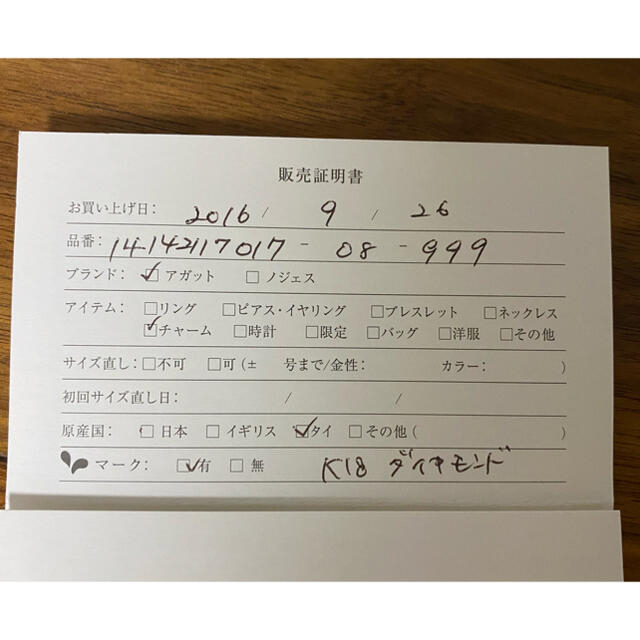 販売証明書
お買い上げ日: 2016 / 9 / 26
品番: 14142117017 - 08 - 999
ブランド: ☑アガット □ノジェス
アイテム: □リング □ピアス・イヤリング □ブレスレット □ネックレス
☑チャーム □時計 □限定 □バッグ □洋服 □その他
サイズ直し: □不可 □可 (± 号まで/金性: カラー: )
初回サイズ直し日: / /
原産国: □日本 □イギリス ☑タイ □その他 ( )
マーク: ☑有 □無 K18 ダイヤモンド